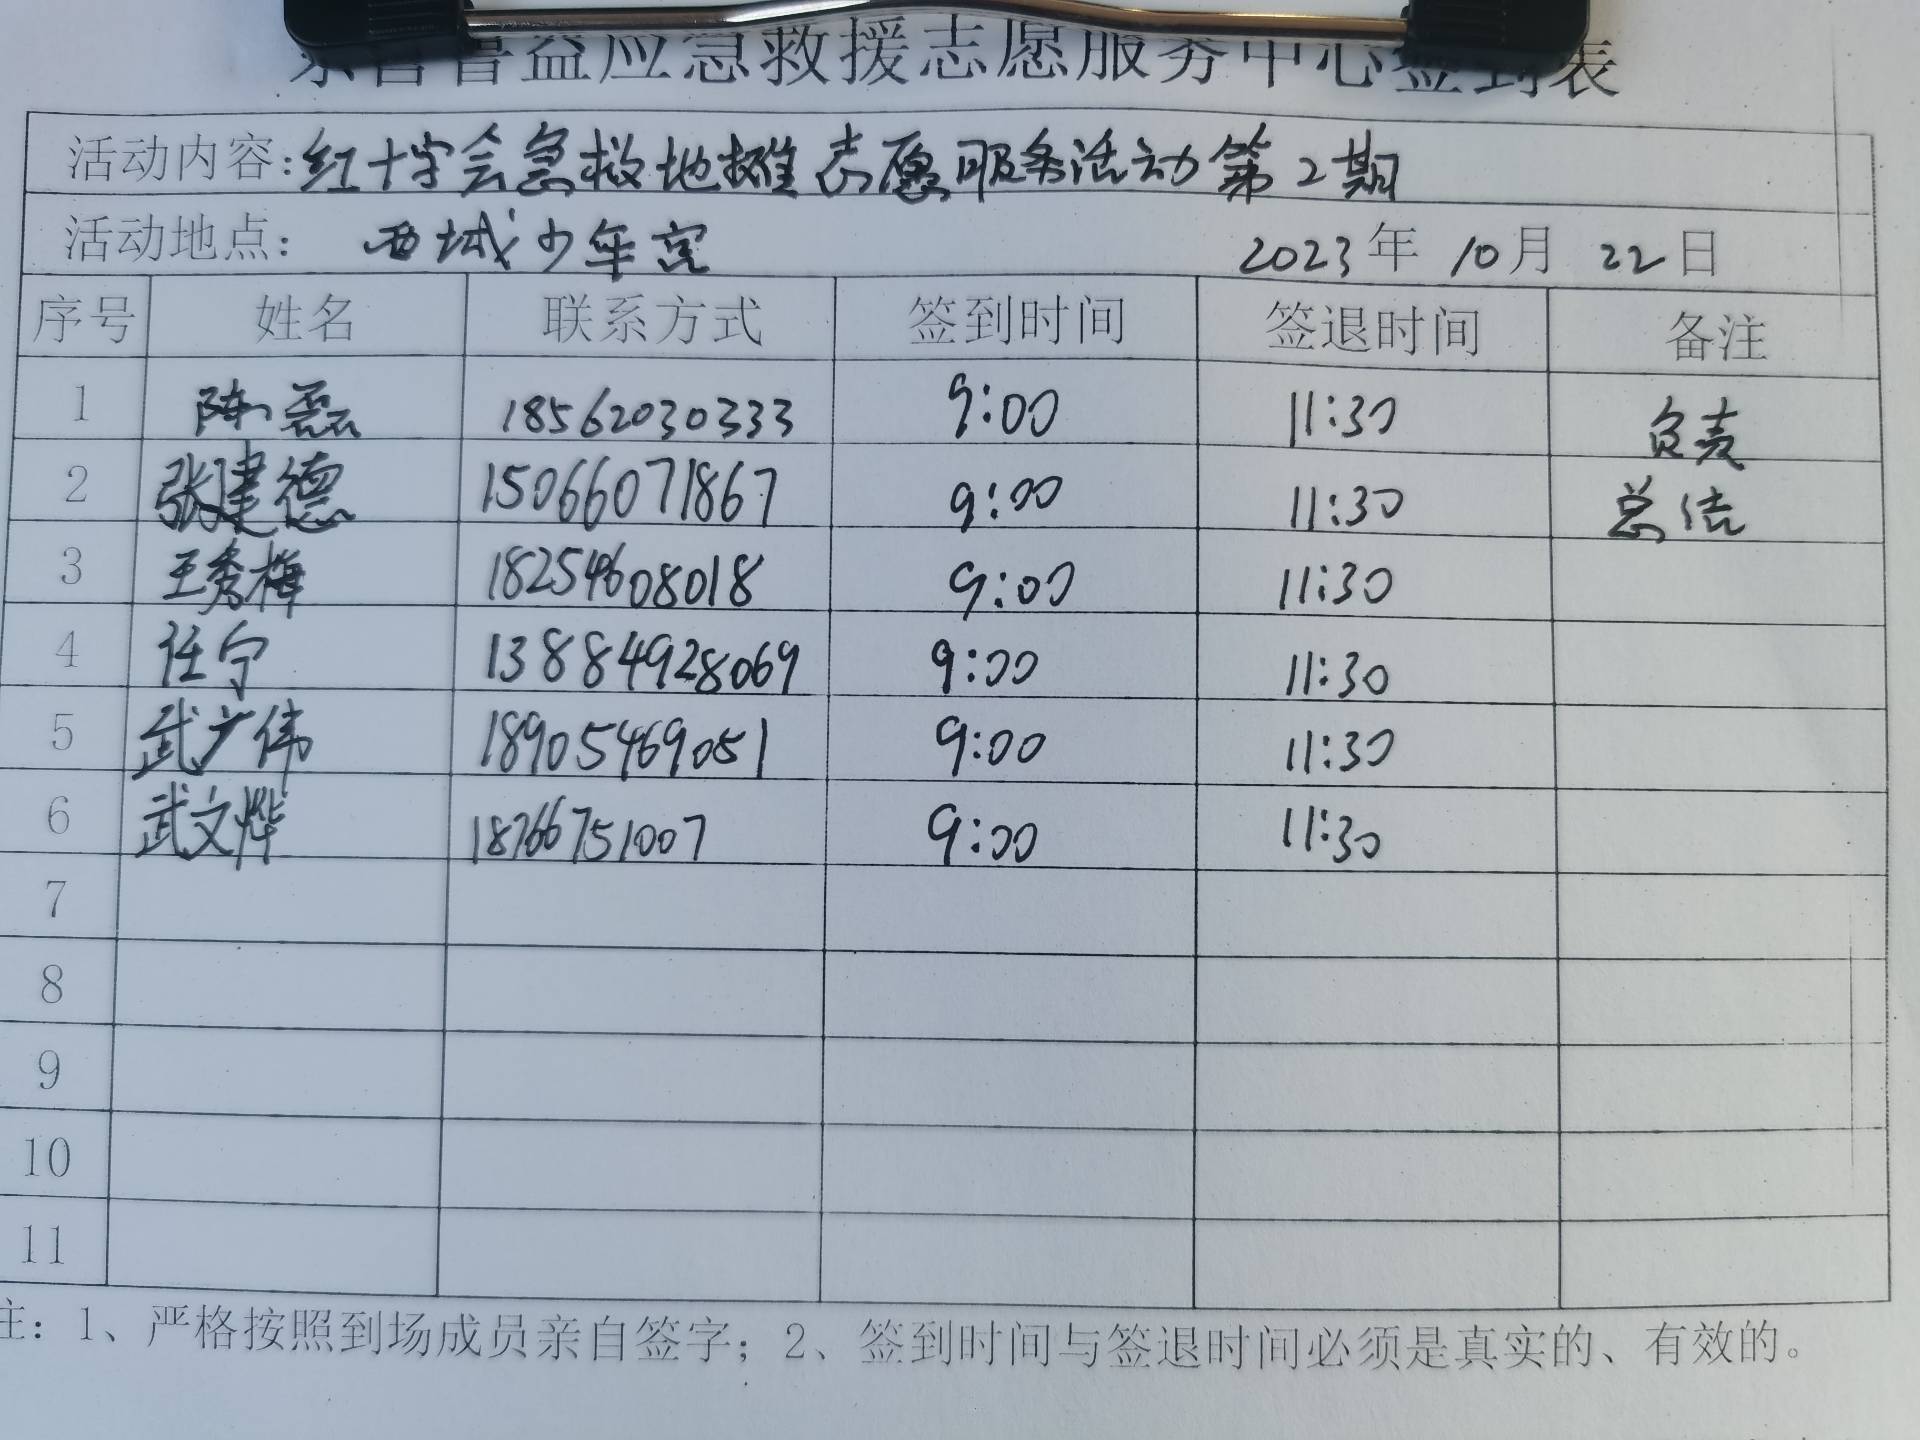 东营普益应急救援志愿服务中心签到表
活动内容:红十字会急救地摊志愿服务活动第2期
活动地点: 西城少年宫 2023年 10月 22日
序号 姓名 联系方式 签到时间 签退时间 备注
1 陈磊 18562030333 9:00 11:30 负责
2 张建德 15066071867 9:00 11:30 总结
3 王秀梅 18254608018 9:00 11:30
4 任宁 13884928069 9:00 11:30
5 武广伟 18905469051 9:00 11:30
6 武文烨 18766751007 9:00 11:30
7
8
9
10
11
注: 1、严格按照到场成员亲自签字; 2、签到时间与签退时间必须是真实的、有效的。